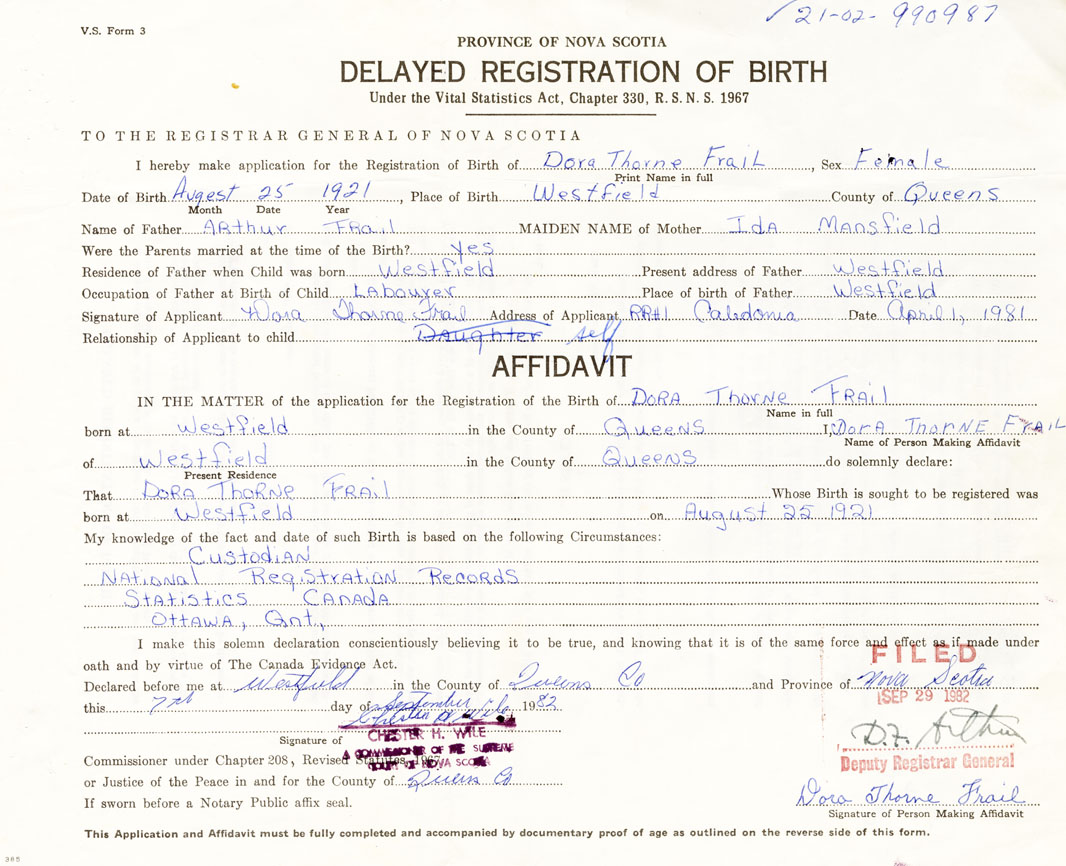 21-02-990987
V.S. Form 3
PROVINCE OF NOVA SCOTIA
DELAYED REGISTRATION OF BIRTH
Under the Vital Statistics Act, Chapter 330, R.S.N.S. 1967
TO THE REGISTRAR GENERAL OF NOVA SCOTIA
I hereby make application for the Registration of Birth of Dora Thorne Frail, Sex Female
Print Name in full
Date of Birth Augest 25 1921, Place of Birth Westfield County of Queens
Month Date Year
Name of Father Arthur Frail MAIDEN NAME of Mother Ida Mansfield
Were the Parents married at the time of the Birth? yes
Residence of Father when Child was born Westfield Present address of Father Westfield
Occupation of Father at Birth of Child Labouyer Place of birth of Father Westfield
Signature of Applicant Dora Thorne Frail Address of Applicant RR#1 Caledonia Date April 1, 1981
Relationship of Applicant to child Daughter self
AFFIDAVIT
IN THE MATTER of the application for the Registration of the Birth of Dora Thorne Frail
Name in full
born at Westfield in the County of Queens I, Dora Thorne Frail
Name of Person Making Affidavit
of Westfield in the County of Queens do solemnly declare:
Present Residence
That Dora Thorne Frail Whose Birth is sought to be registered was
born at Westfield on August 25 1921
My knowledge of the fact and date of such Birth is based on the following Circumstances:
Custodian
National Registration Records
Statistics Canada
Ottawa, Ont,
I make this solemn declaration conscientiously believing it to be true, and knowing that it is of the same force and effect as if made under
oath and by virtue of The Canada Evidence Act.
FILED
Declared before me at Westfield in the County of Queens Co and Province of Nova Scotia
SEP 29 1982
this 7th day of September 1982
Chester H. Wile
D.F. Arthur
Signature of CHESTER H. WILE
A COMMISSIONER OF THE SUPREME
COURT OF NOVA SCOTIA
Commissioner under Chapter 208, Revised Statutes, 1967
Deputy Registrar General
or Justice of the Peace in and for the County of Queens Co
If sworn before a Notary Public affix seal.
Dora Thorne Frail
Signature of Person Making Affidavit
This Application and Affidavit must be fully completed and accompanied by documentary proof of age as outlined on the reverse side of this form.
385